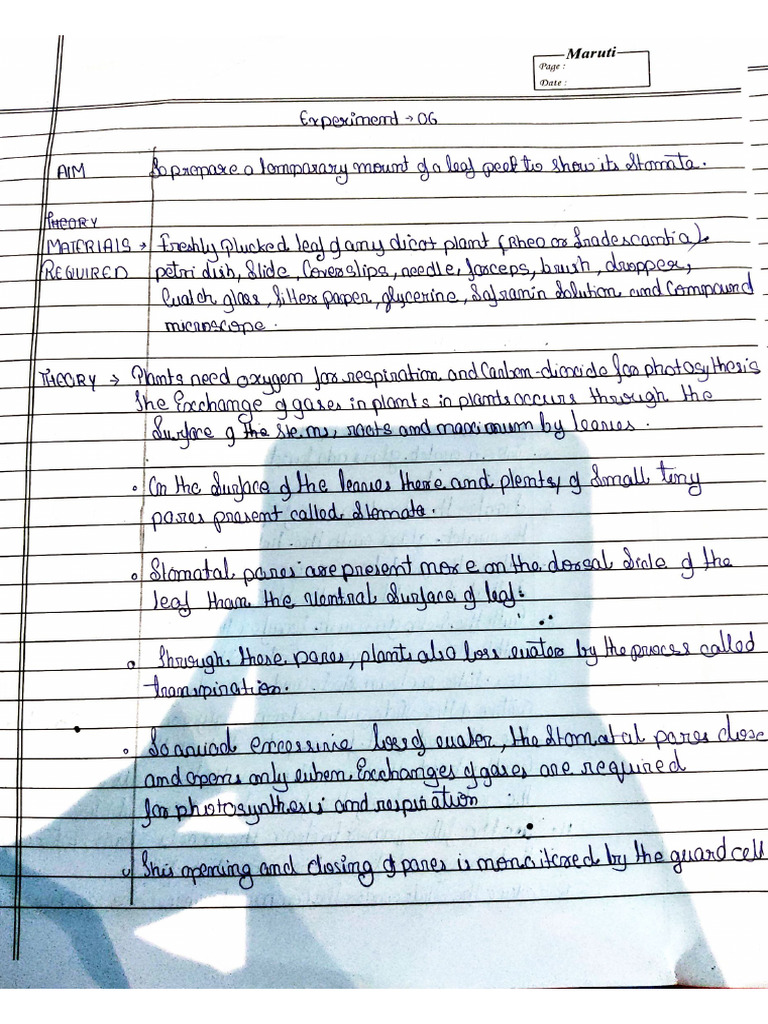 Maruti
Page :
Date :
Experiment → 06
AIM To prepare a temparary mount of a leaf peel to show its Stomata.
THEORY
MATERIALS → Freshly plucked leaf of any dicot plant (Rheo or Tradescantia),
REQUIRED petri dish, Slide, Coverslips, needle, forceps, brush, dropper,
Watch glass, filter paper, glycerine, Safranin Solution and Compound
microscope.
THEORY → Plants need oxygen for respiration and Carbon-dioxide for photosythesis
The Exchange of gases in plants in plants occurs through the
Surface of the stems, roots and maximum by leaves.
• On the Surface of the leaves there and plenty of Small tiny
pores present called Stomata.
• Stomatal pores are present more on the dorsal Side of the
leaf than the Ventral Surface of leaf.
• Through these pores, plants also loss water by the process called
transpiration.
• To avoid excessive loss of water, the Stomatal pores close
and opens only when Exchanges of gases are required
for photosynthesis and respiration
• This opening and closing of pores is monitored by the guard cell